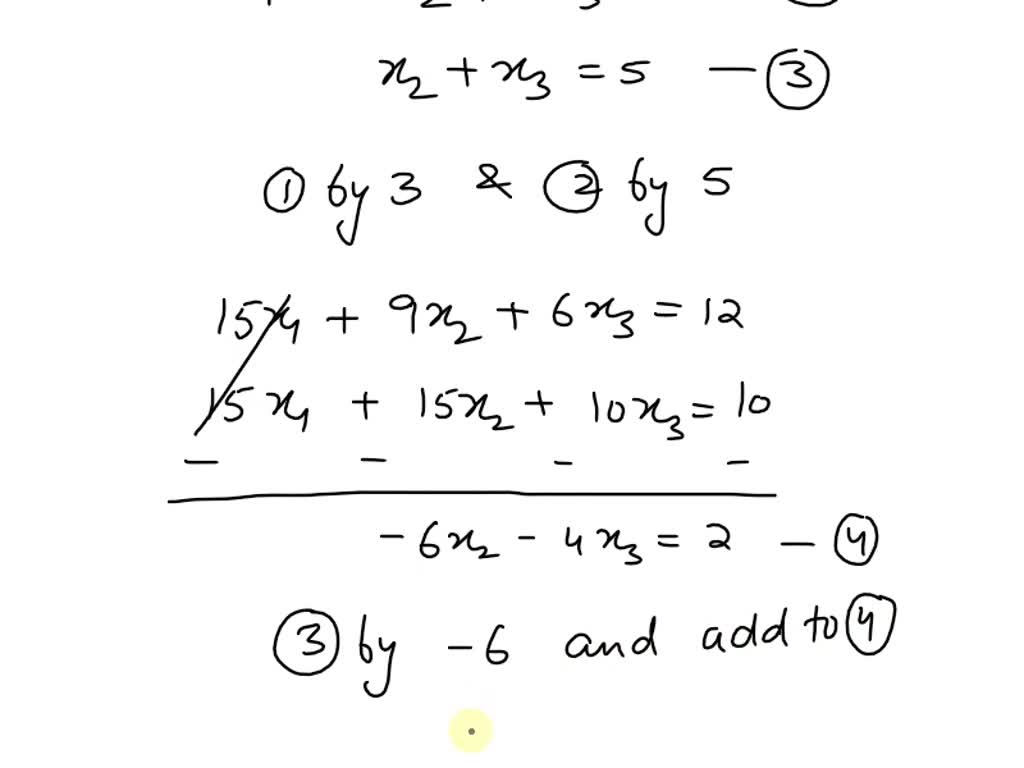 x₂ + x₃ = 5 — ③
① by 3 & ② by 5
15x₁ + 9x₂ + 6x₃ = 12
15x₁ + 15x₂ + 10x₃ = 10
− − − −
−6x₂ − 4x₃ = 2 — ④
③ by −6 and add to ④